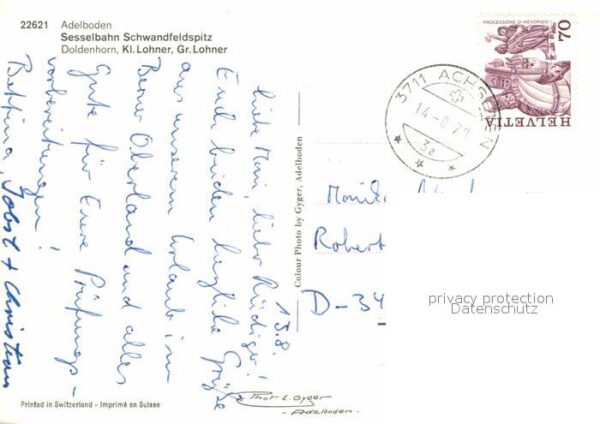 22621 Adelboden
Sesselbahn Schwandfeldspitz
Doldenhorn, Kl. Lohner, Gr. Lohner
13.8.
Liebe Moni, lieber Rüdiger!
Euch beiden herzliche Grüße
aus unserem Urlaub im
Berner Oberland und alles
Gute für Eure Prüfungs-
vorbereitungen!
Bettina, Jobst + Christian
Printed in Switzerland - Imprimé en Suisse
Colour Photo by Gyger, Adelboden
Phot E. Gyger
Adelboden.
3711
14.-8.79
3a
PROCESSIONE DI MENDRISIO
70
HELVETIA
Robert
D-34
privacy protection
Datenschutz